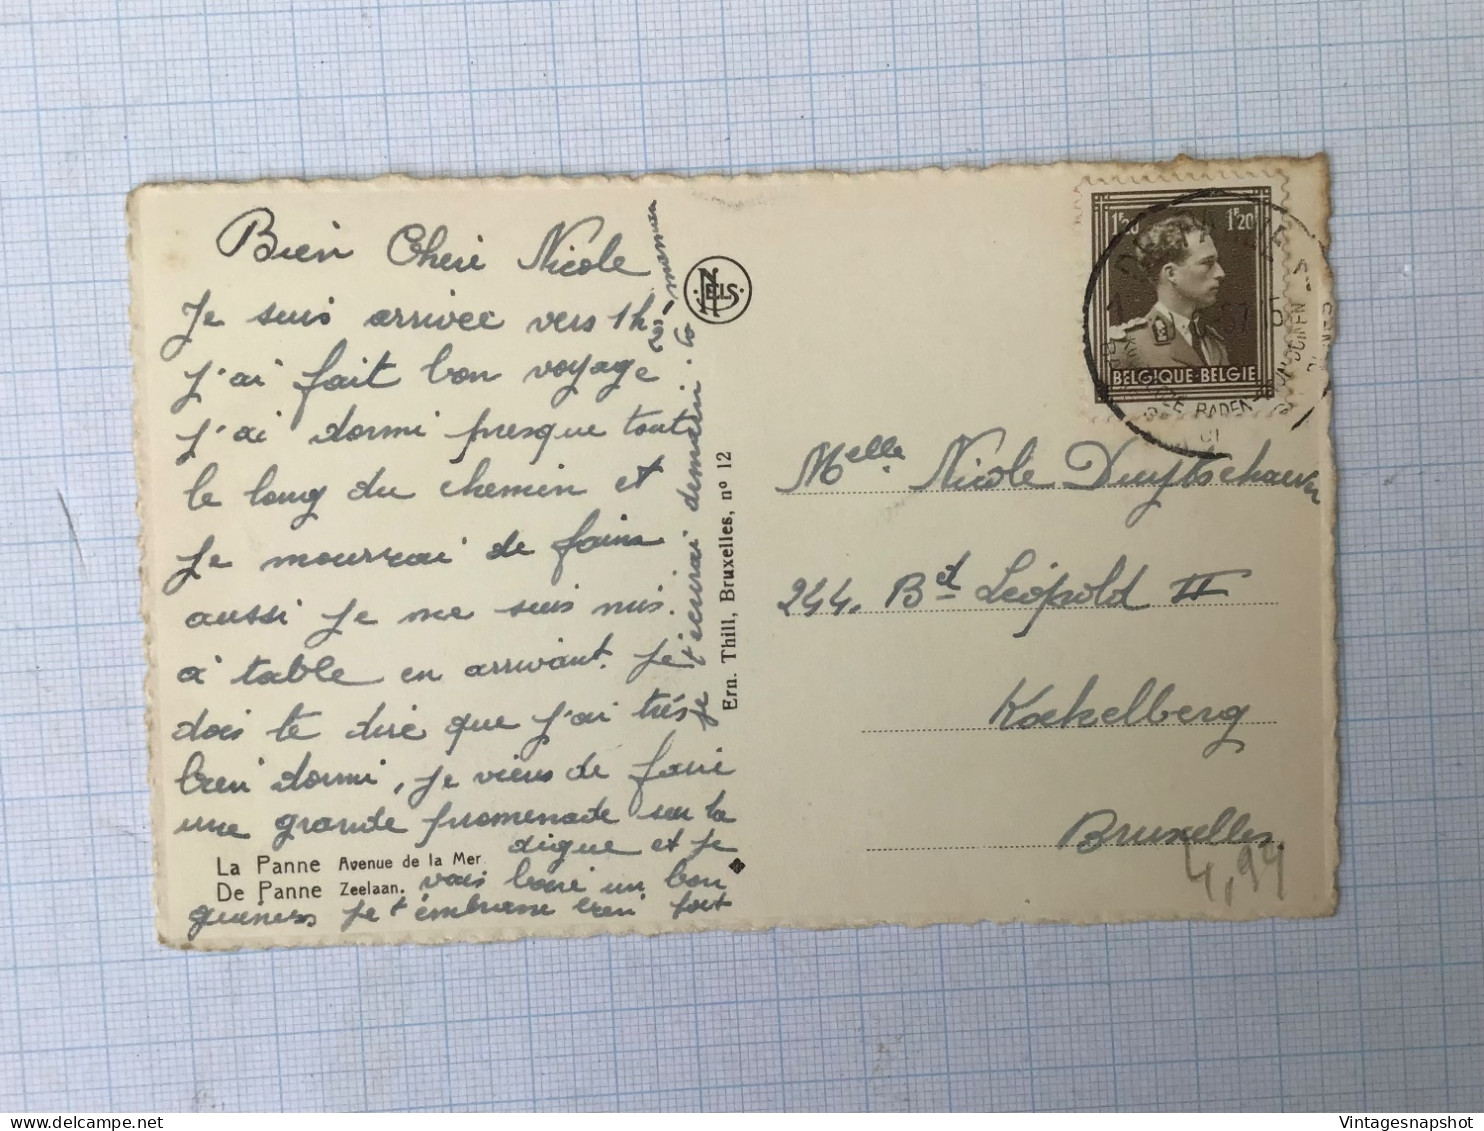 Bien Chérie Nicole
Je suis arrivée vers 1h
j'ai fait bon voyage
j'ai dormi presque tout
le long du chemin et
je mourrai de faim
aussi je me suis mis
à table en arrivant. Je
dois te dire que j'ai très
bien dormi, je viens de faire
une grande promenade sur la
digue et je
vais boire un bon
je t'embrasse bien fort
je t'écrirai demain
maman
La Panne Avenue de la Mer.
De Panne Zeelaan.
NELS
Ern. Thill, Bruxelles, n° 12
1F20 1F20
BELGIQUE-BELGIE
Melle Nicole Duytschaever
244. Bd Léopold II
Koekelberg
Bruxelles
4,94
Vintagesnapshot